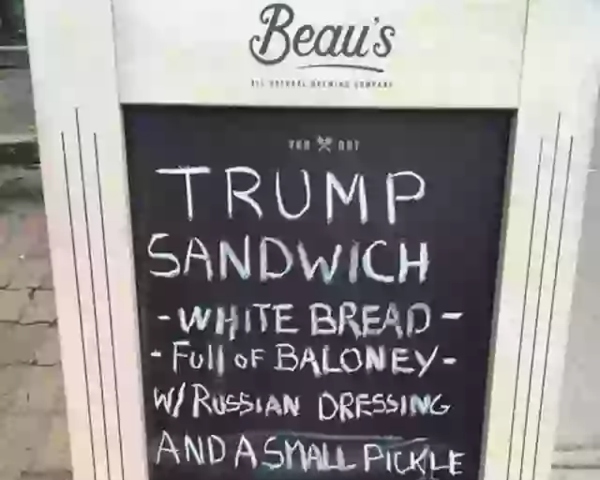 Beau's
ALL NATURAL BREWING COMPANY
TRUMP
SANDWICH
-WHITE BREAD-
-Full OF BALONEY-
W/ RUSSIAN DRESSING
AND A SMALL PICKLE